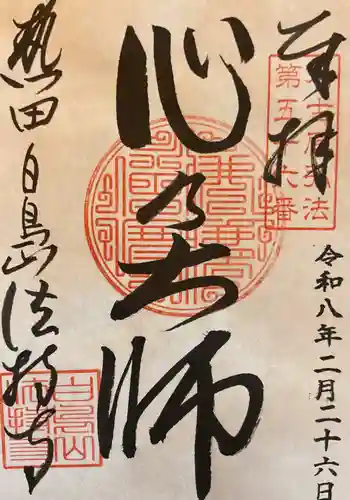 奉拝
弘法
第五十六番
令和八年二月二十六日
心乃大師
熱田白鳥山法持寺
白鳥山
法持寺